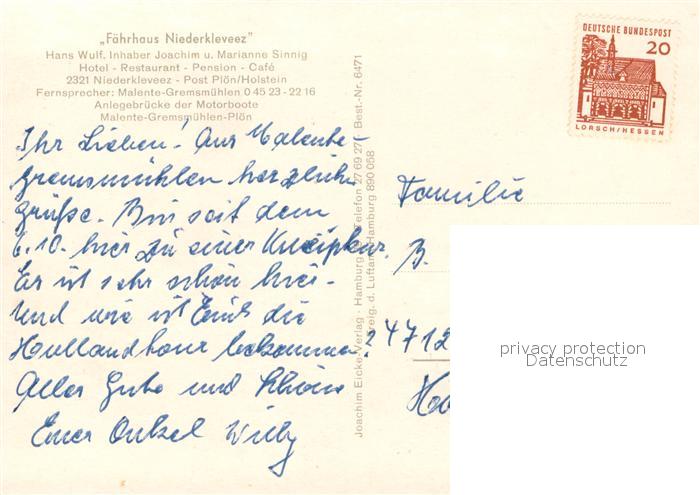 „Fährhaus Niederkleveez"
Hans Wulf, Inhaber Joachim u. Marianne Sinnig
Hotel - Restaurant - Pension - Café
2321 Niederkleveez - Post Plön/Holstein
Fernsprecher: Malente-Gremsmühlen 0 45 23 - 22 16
Anlegebrücke der Motorboote
Malente-Gremsmühlen-Plön
Ihr Lieben! Aus Malente-
gremsmühlen herzliche
Grüße. Bin seit dem
6.10. hier zu einer Kneippkur.
Es ist sehr schön hier.
Und wie ist Euch die
Hollandtour bekommen?
Alles Gute und schöne
Euer Onkel Willy
Joachim Eicke-Verlag · Hamburg · Telefon 27 69 27 · Best.-Nr. 6471
Freig. d. Luftamt Hamburg 890 058
DEUTSCHE BUNDESPOST
20
LORSCH/HESSEN
Familie
B.
4712
privacy protection
Datenschutz